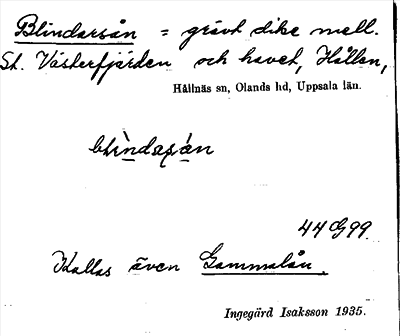 Blindarsån = grävt dike mell.
St. Västerfjärden och havet, Hållen,
Hållnäs sn, Olands hd, Uppsala län.
44 G 99
Kallas även Gammalån.
Ingegärd Isaksson 1935.